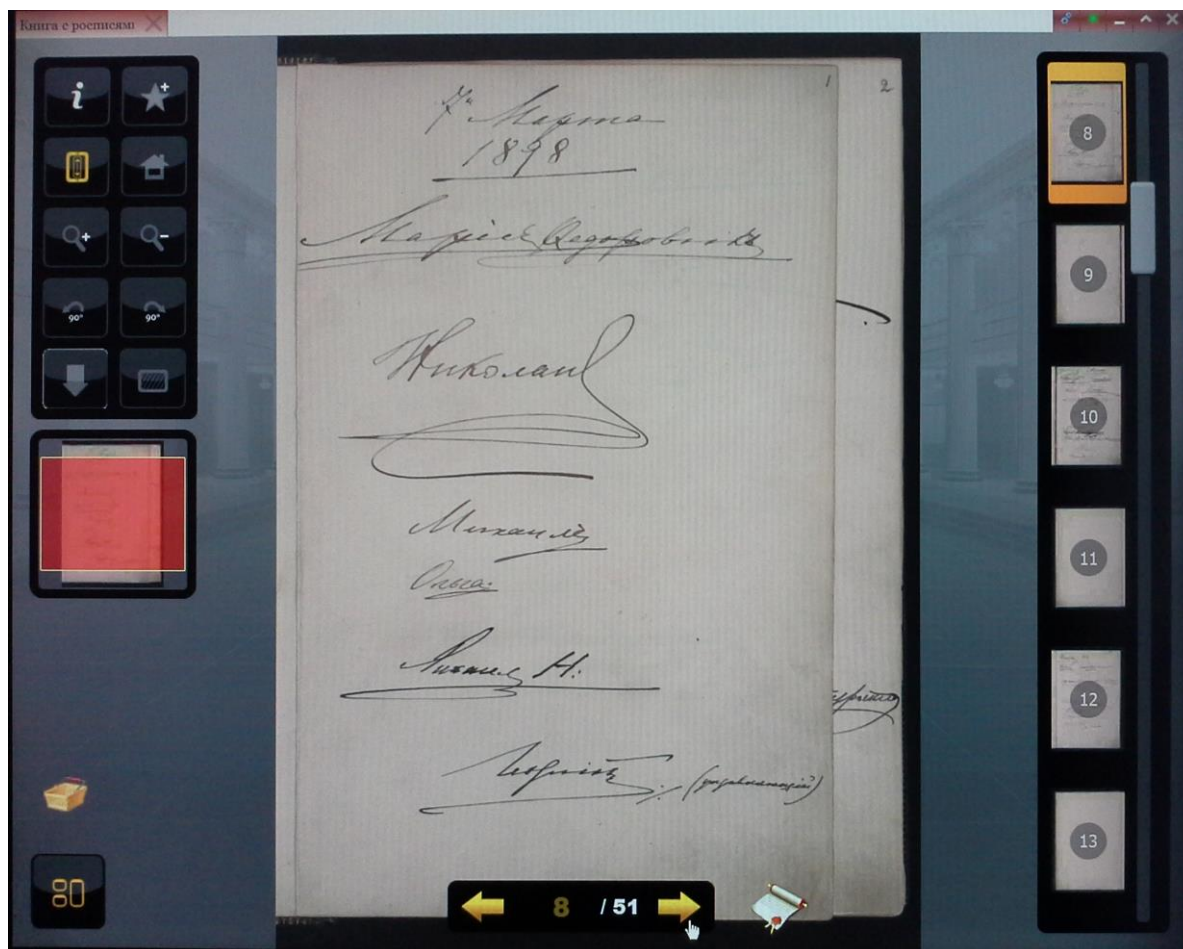 Книга с росписями
1
2
7го Марта
1898
Марія Ѳедоровна
Николай
Михаилъ
Ольга.
Михаилъ Н:
Георгій (управляющій)
90°
90°
8
9
10
11
12
13
8 / 51